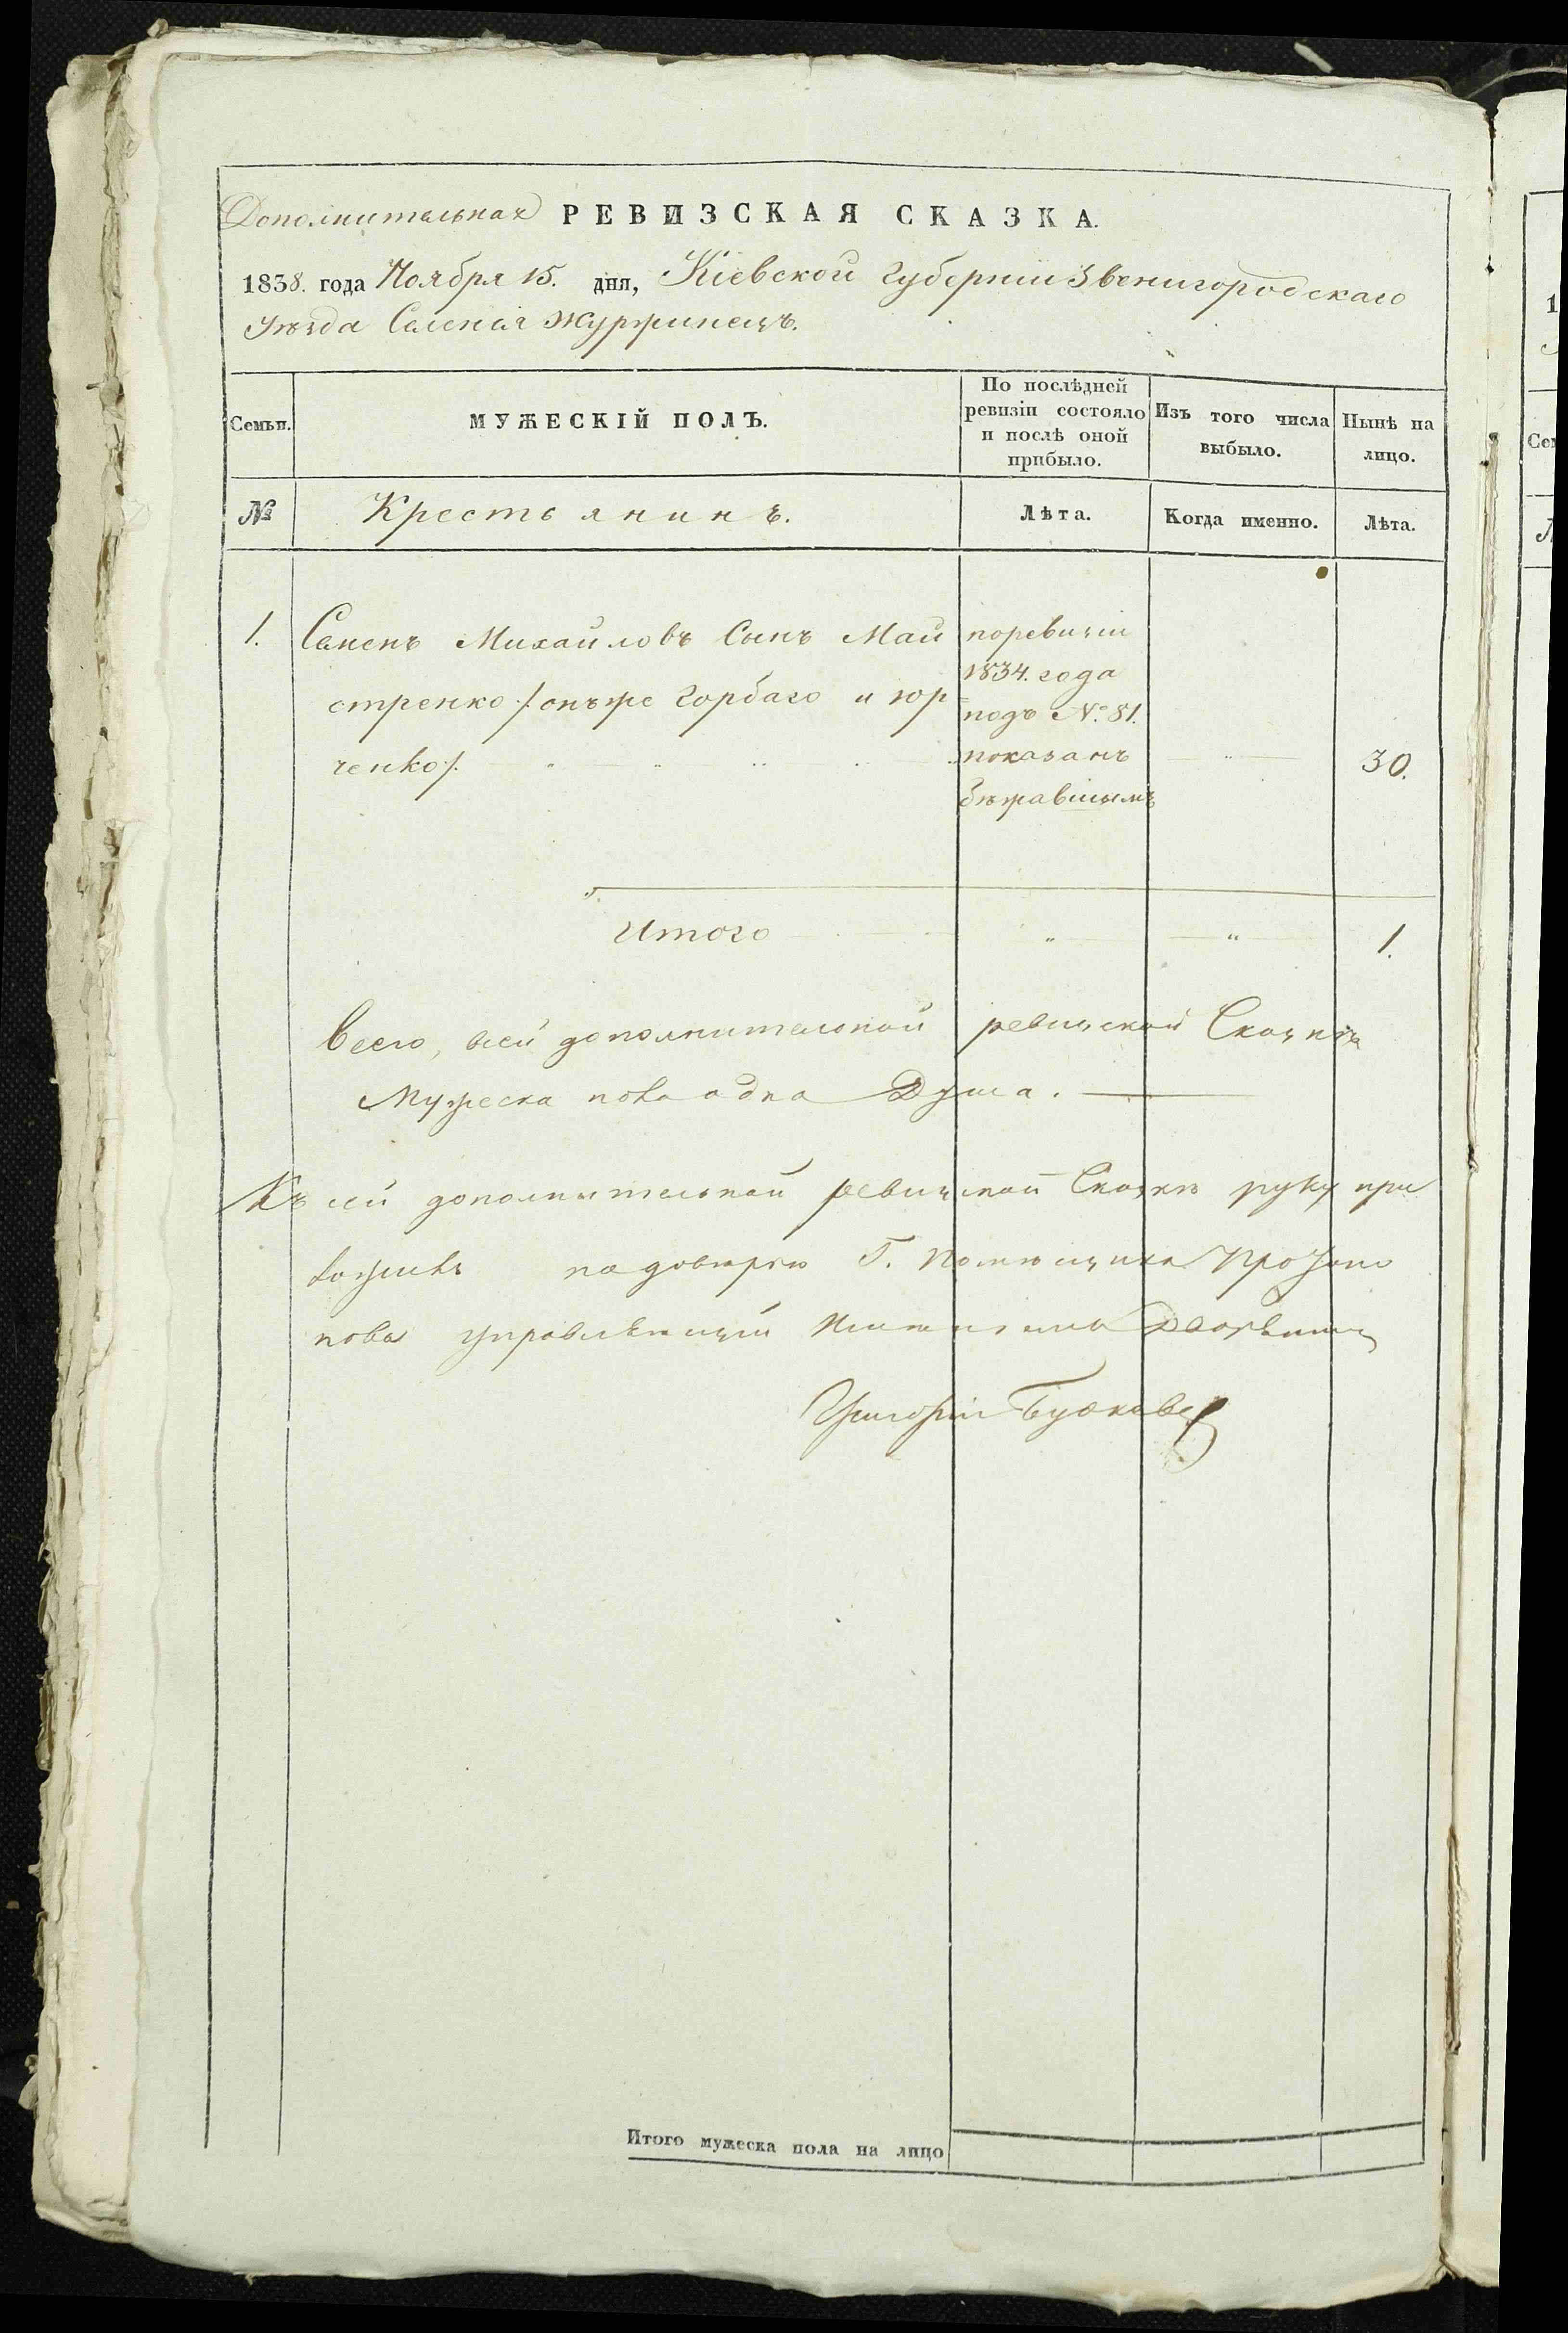 Дополнительная РЕВИЗСКАЯ СКАЗКА.
1838. года Ноября 15. дня, Кіевской Губерніи Звенигородскаго
уѣзда Селенія Журжинецъ.
Семьи.
МУЖЕСКІЙ ПОЛЪ.
По послѣдней
ревизіи состояло
и послѣ оной
прибыло.
Изъ того числа
выбыло.
Нынѣ на
лицо.
№
Крестьянинъ.
Лѣта.
Когда именно.
Лѣта.
1. Семенъ Михайловъ Сынъ Май
стренко /: онъже Горбаго и юр
ченко /.
поревизіи
1834. года
подъ №. 81.
показанъ
бѣжавшимъ
30.
Итого " " 1.
Всего, всей дополнительной ревизской Сказкѣ
Мужеска пола одна Душа.
Къ сей дополнительной ревизской Сказкѣ руку при
ложилъ подовѣрію Г. Помѣщика
управляющій
Григорій
Итого мужеска пола на лицо